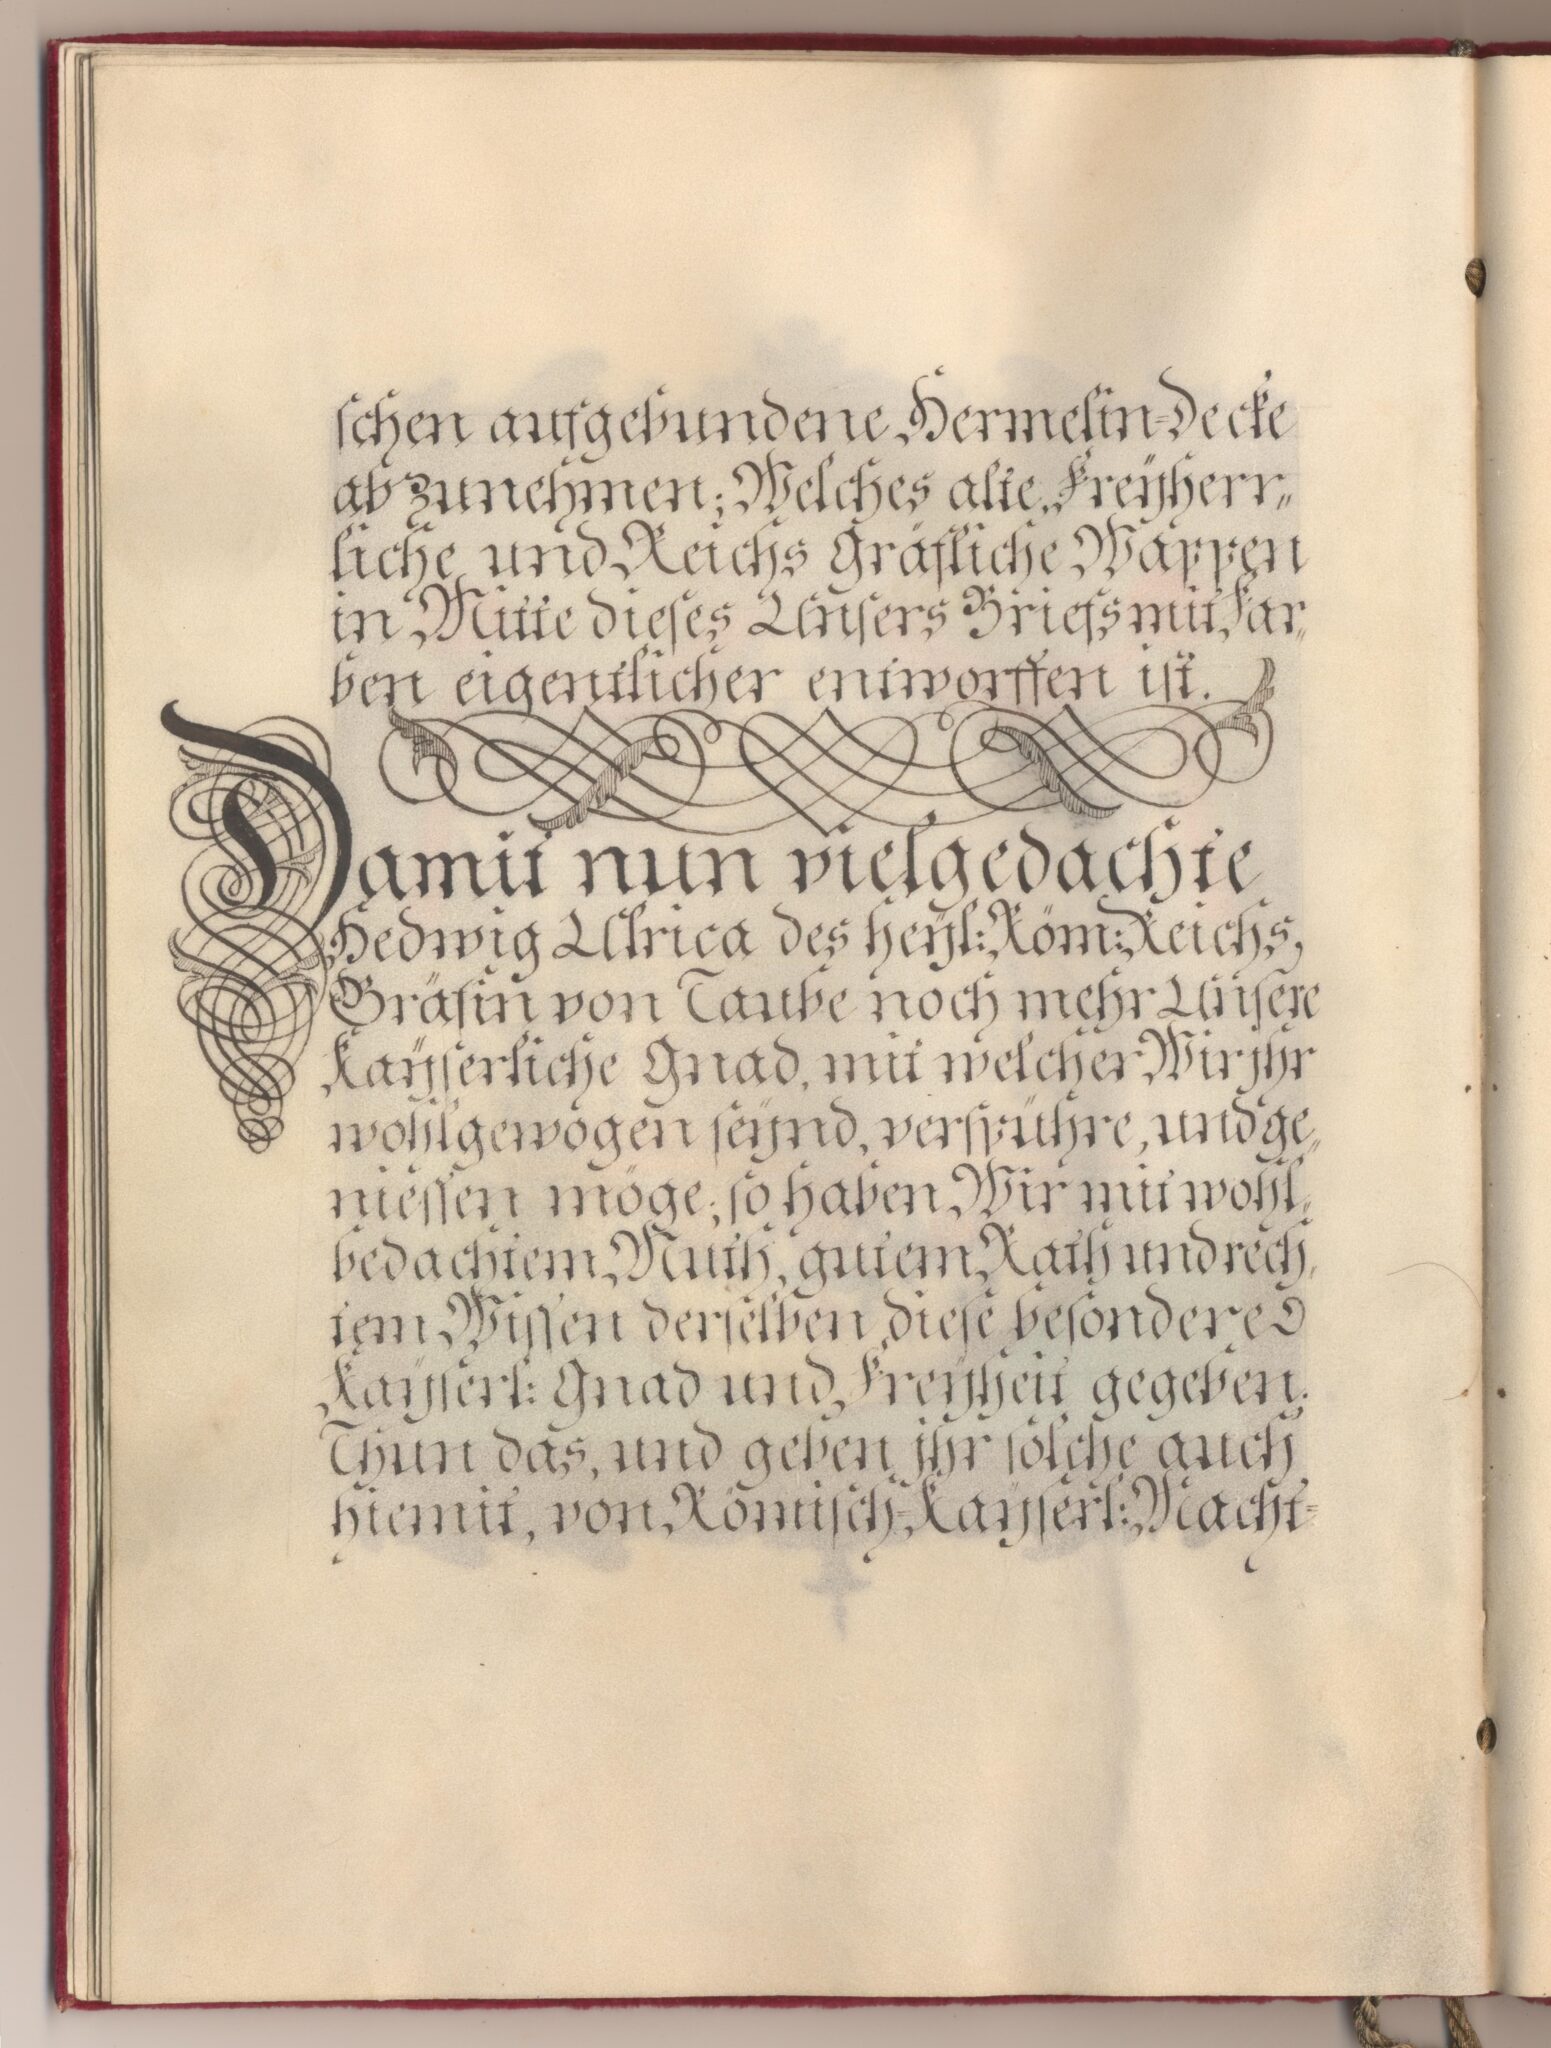 schen aufgebundene Hermelin-Decke
abzunehmen; Welches alte, Freÿherr„
liche und Reichs Gräfliche Wappen
in Mitte dieses Unsers Briefs mit Far„
ben eigentlicher entworffen ist.
Damit nun vielgedachte
Hedwig Ulrica des heÿl: Röm: Reichs,
Gräfin von Taube noch mehr Unsere
Kaÿserliche Gnad, mit welcher Wir jhr
wohlgewogen seÿnd, verspühre, und ge„
niessen möge; so haben Wir mit wohl„
bedachtem Muth, gutem Rath und rech„
tem Wissen derselben diese besondere
Kaÿserl: Gnad und Freÿheit gegeben.
Thun das, und geben jhr solche auch
hiemit, von Römisch-Kaÿserl: Macht-